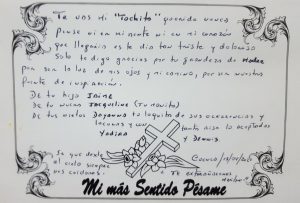 Te vas mi "Tochito" querida nunca
pense ni en mi mente ni en mi corazón
que llegaria este dia tan triste y doloroso
Solo te digo gracias por tu grandeza de Madre
por ser la luz de mis ojos y mi camino, por ser nuestra
fuente de inspiración
De tu hijo Jaime
De tu nuera Jacqueline (Tu novita)
De tus nietos Dayanna tu loquita de sus ocurrencias y
locuras y con tanta risa lo aceptabas
Yadira y Dennis.
Se que desde
el cielo siempre
nos cuidaras.
Te extrañaremos
Mi más Sentido Pésame